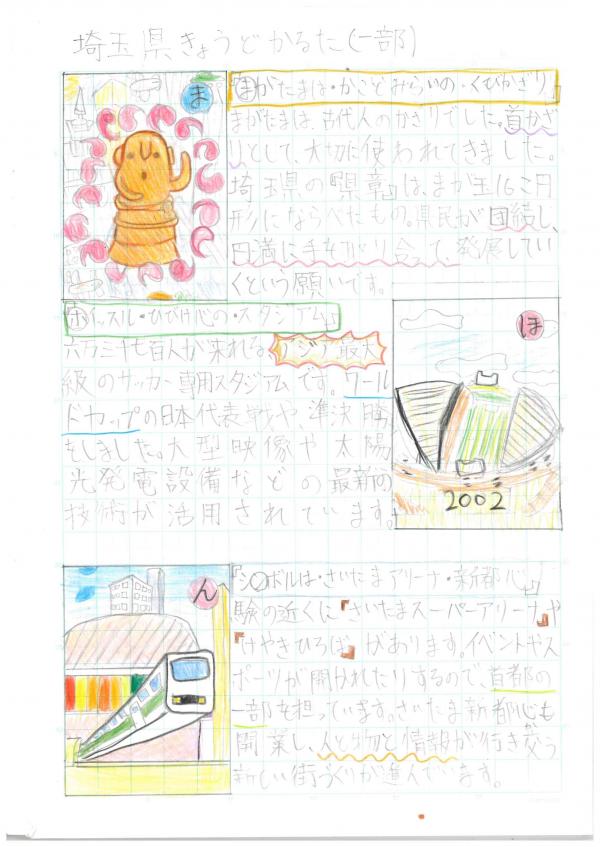 埼玉県きょうどかるた(一部)
ま
まがたまは・かことみらいの・くびかざり
まがたまは、古代人のかざりでした。首かざ
りとして、大切に使われてきました。
埼玉県の『県章』は、まが玉16こ円
形にならべたもの。県民が団結し、
円満に手をとり合って、発展してい
くという願いです。
ホイッスル・ひびけ心の・スタジアム
ほ
六万三千七百人が来れる、アジア最大
級のサッカー専用スタジアムです。ワール
ドカップの日本代表戦や、準決勝
をしました。大型映像や太陽
光発電設備などの最新の
技術が活用されています。
2002
ん
『シンボルは・さいたまアリーナ・新都心』
駅の近くに『さいたまスーパーアリーナ』や
『けやきひろば』があります。イベントやス
ポーツが開かれたりするので、首都の
一部を担っています。さいたま新都心も
開業し、人と物と情報が行き交う
新しい街づくりが進んでいます。